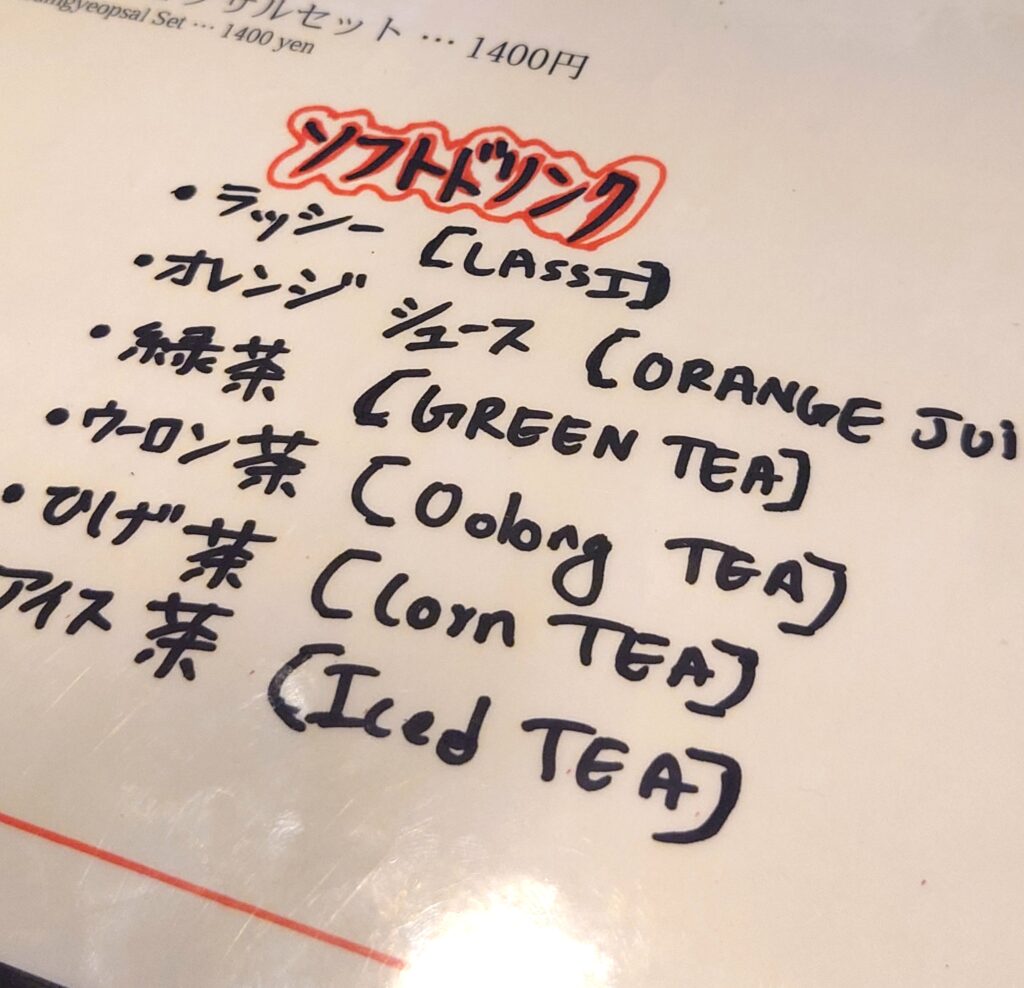 サルセット … 1400円
Set … 1400 yen
ソフトドリンク
・ラッシー [LASSI]
・オレンジ シュース [ORANGE Jui
・緑茶 [GREEN TEA]
・ウーロン茶 [Oolong TEA]
・ひげ茶 [Corn TEA]
アイス茶 [Iced TEA]